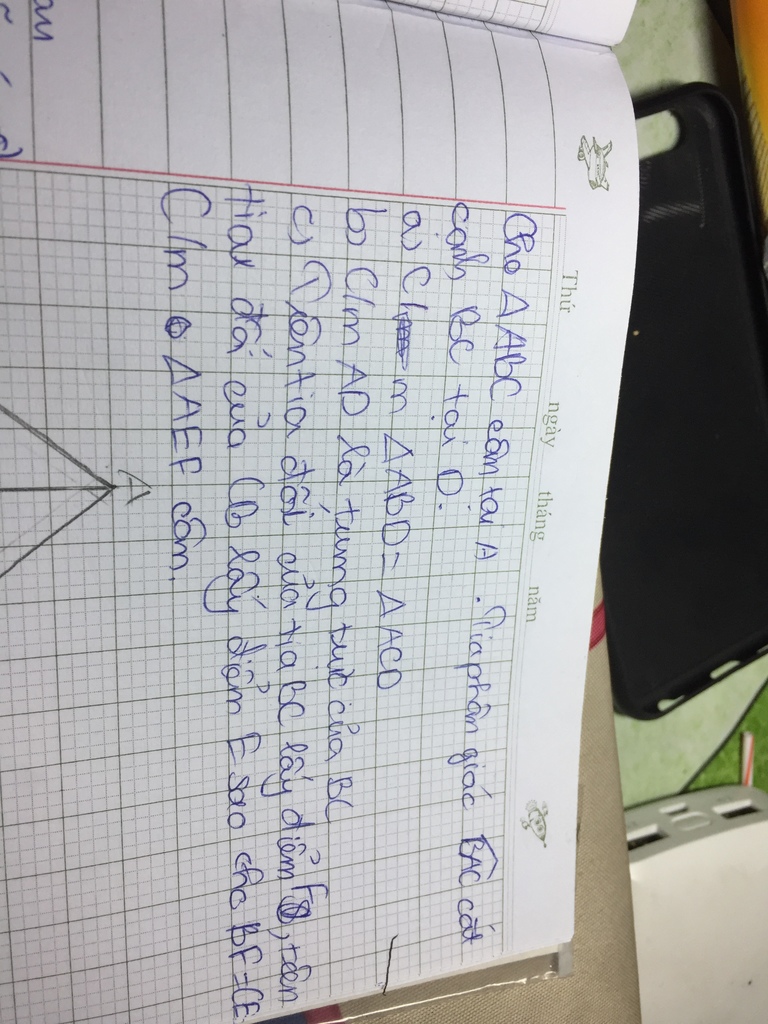 Thứ ngày tháng năm
Cho ΔABC cân tại A. Tia phân giác BAC cắt
cạnh BC tại D.
a) C/m ΔABD = ΔACD
b) C/m AD là trung trực của BC
c) Trên tia đối của tia BC lấy điểm F, trên
tia đối của CB lấy điểm E sao cho BF = CE
C/m ΔAEF cân.
A